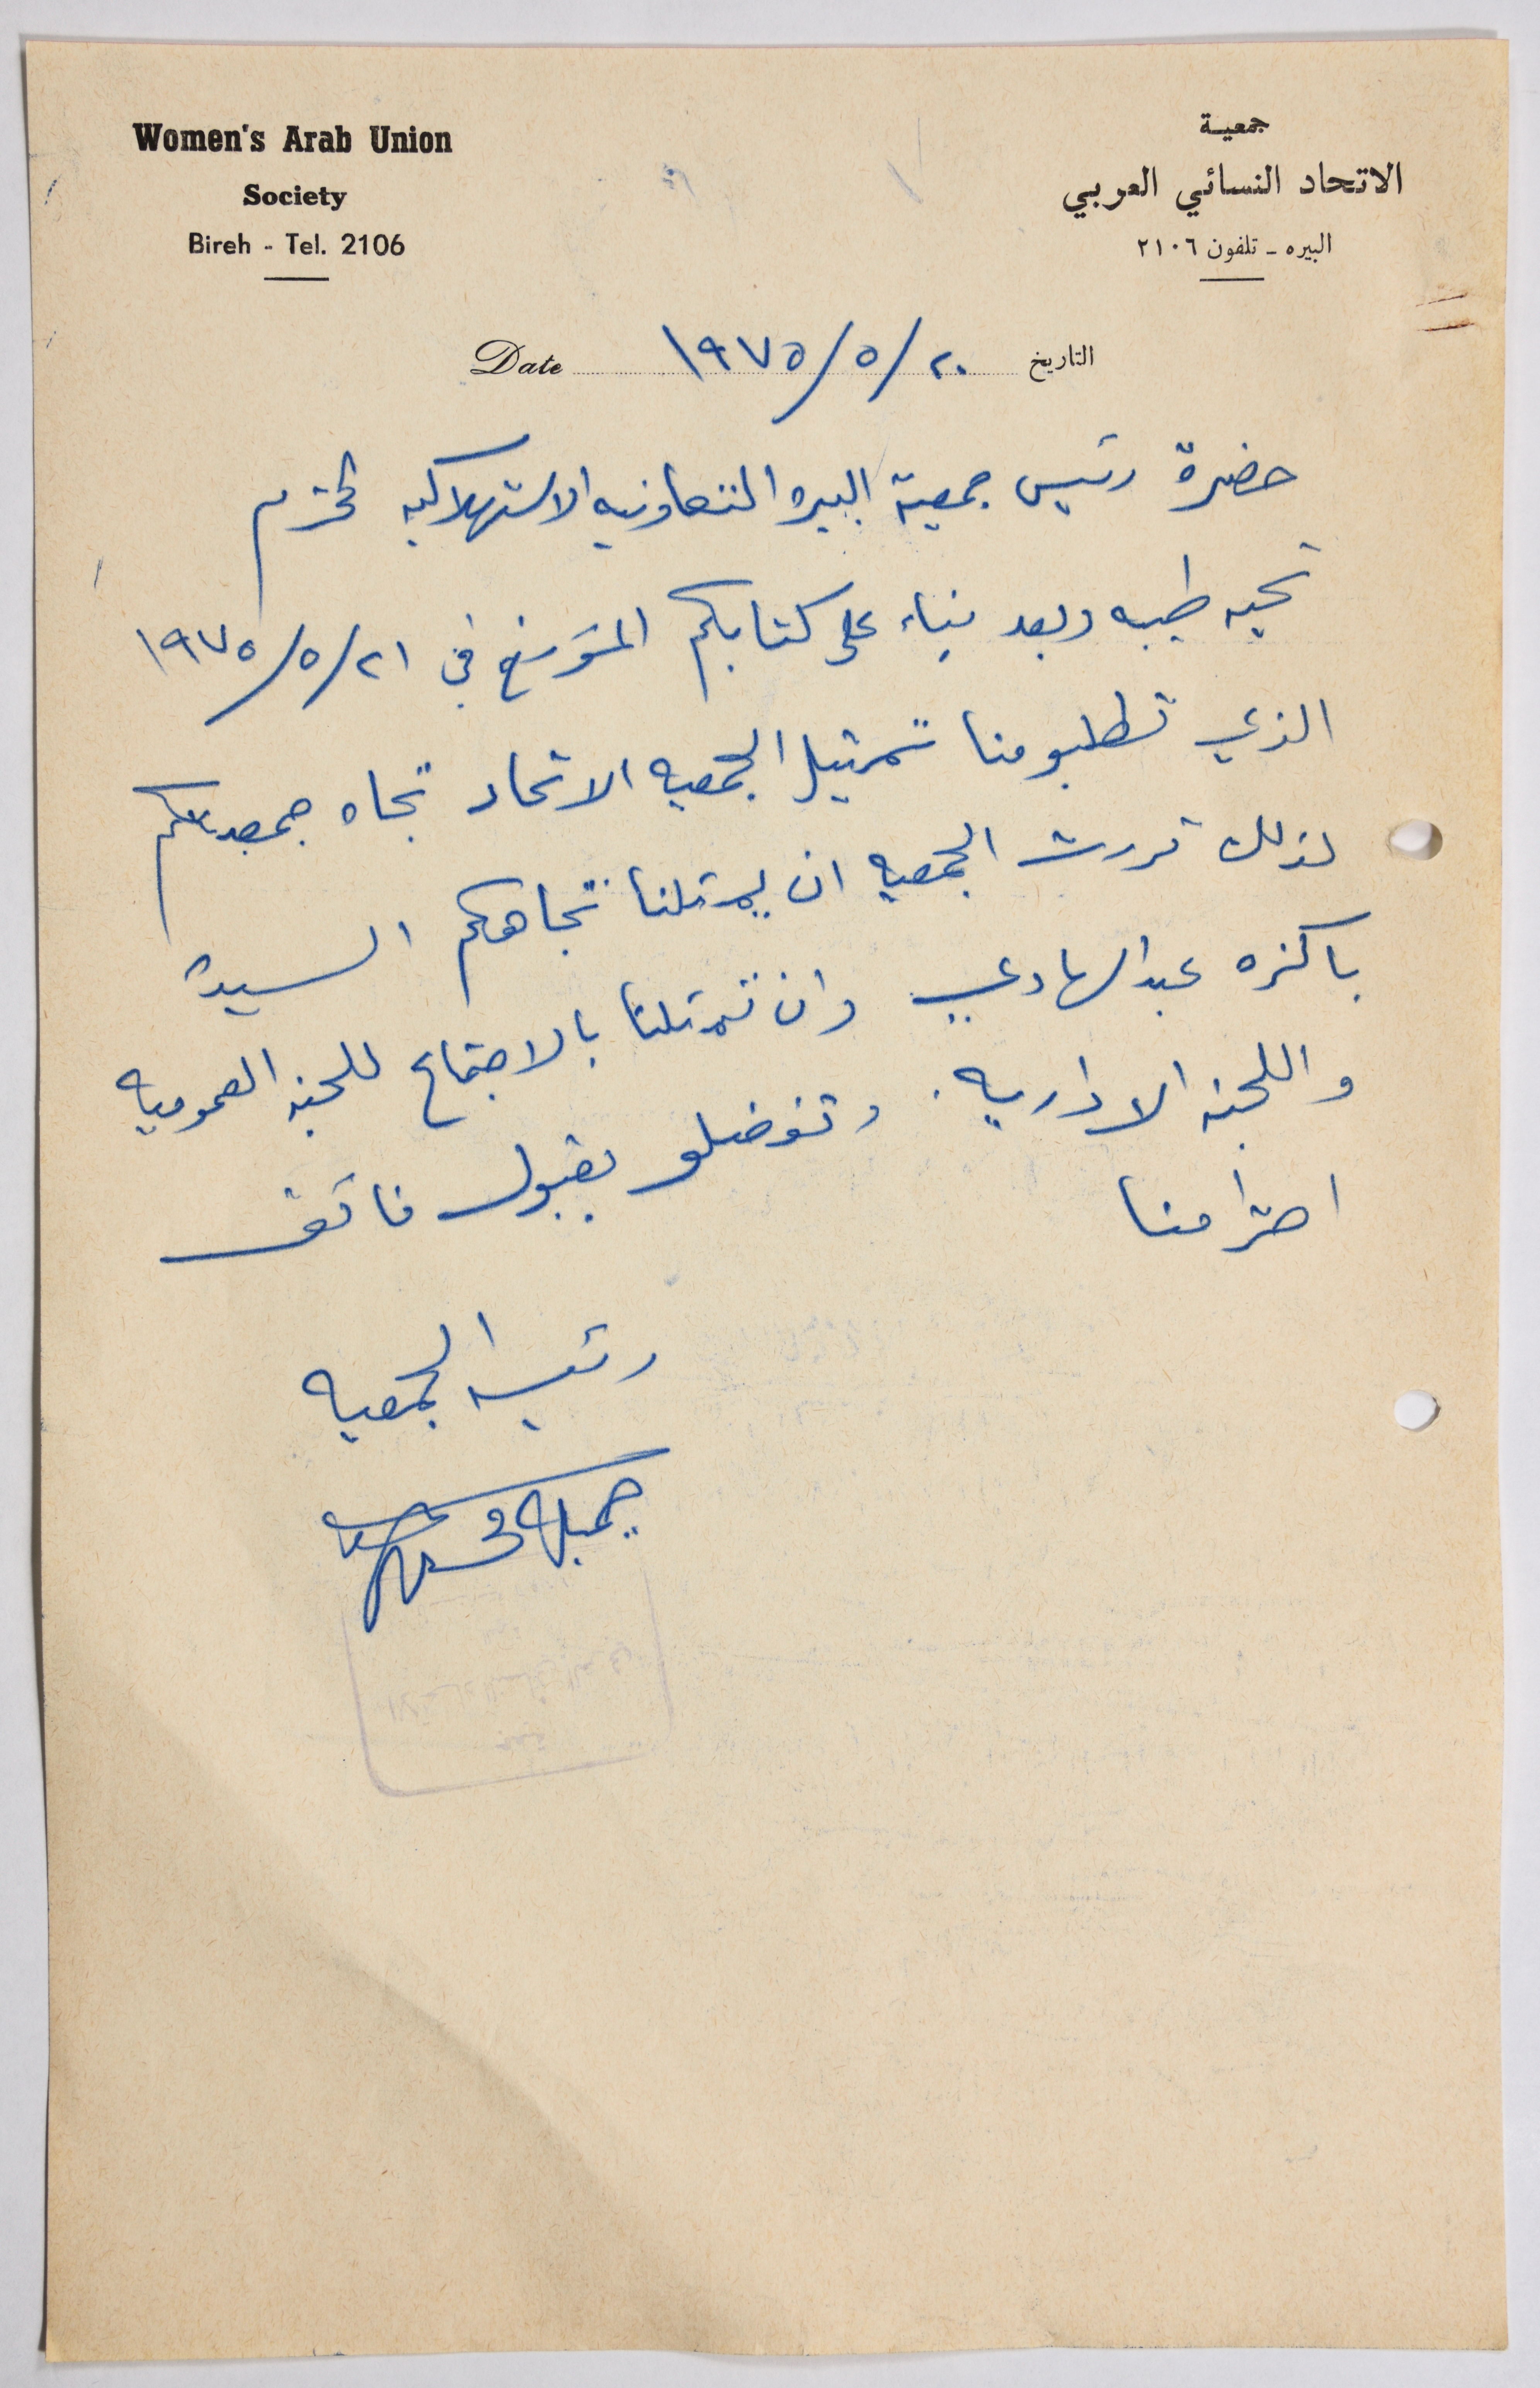 Women's Arab Union
Society
Bireh - Tel. 2106
جمعية
الاتحاد النسائي العربي
البيره - تلفون ٢١٠٦
Date ٢٠/٥/١٩٧٥ التاريخ
حضرة رئيس جمعية البيره التعاونيه الاستهلاكيه المحترم
تحيه طيبه وبعد بناء على كتابكم المؤرخ في ٢١/٥/١٩٧٥
الذي تطلبو منا تمثيل الجمعيه الاتحاد تجاه جمعيتكم
لذلك قررت الجمعيه ان يمثلنا تجاهكم السيدة
باكزه عبد الهادي وان تمثلنا بالاجتماع للجنه العموميه
واللجنه الاداريه. وتفضلو بقبول فائق
احترامنا
رئيسه الجمعيه
جميله